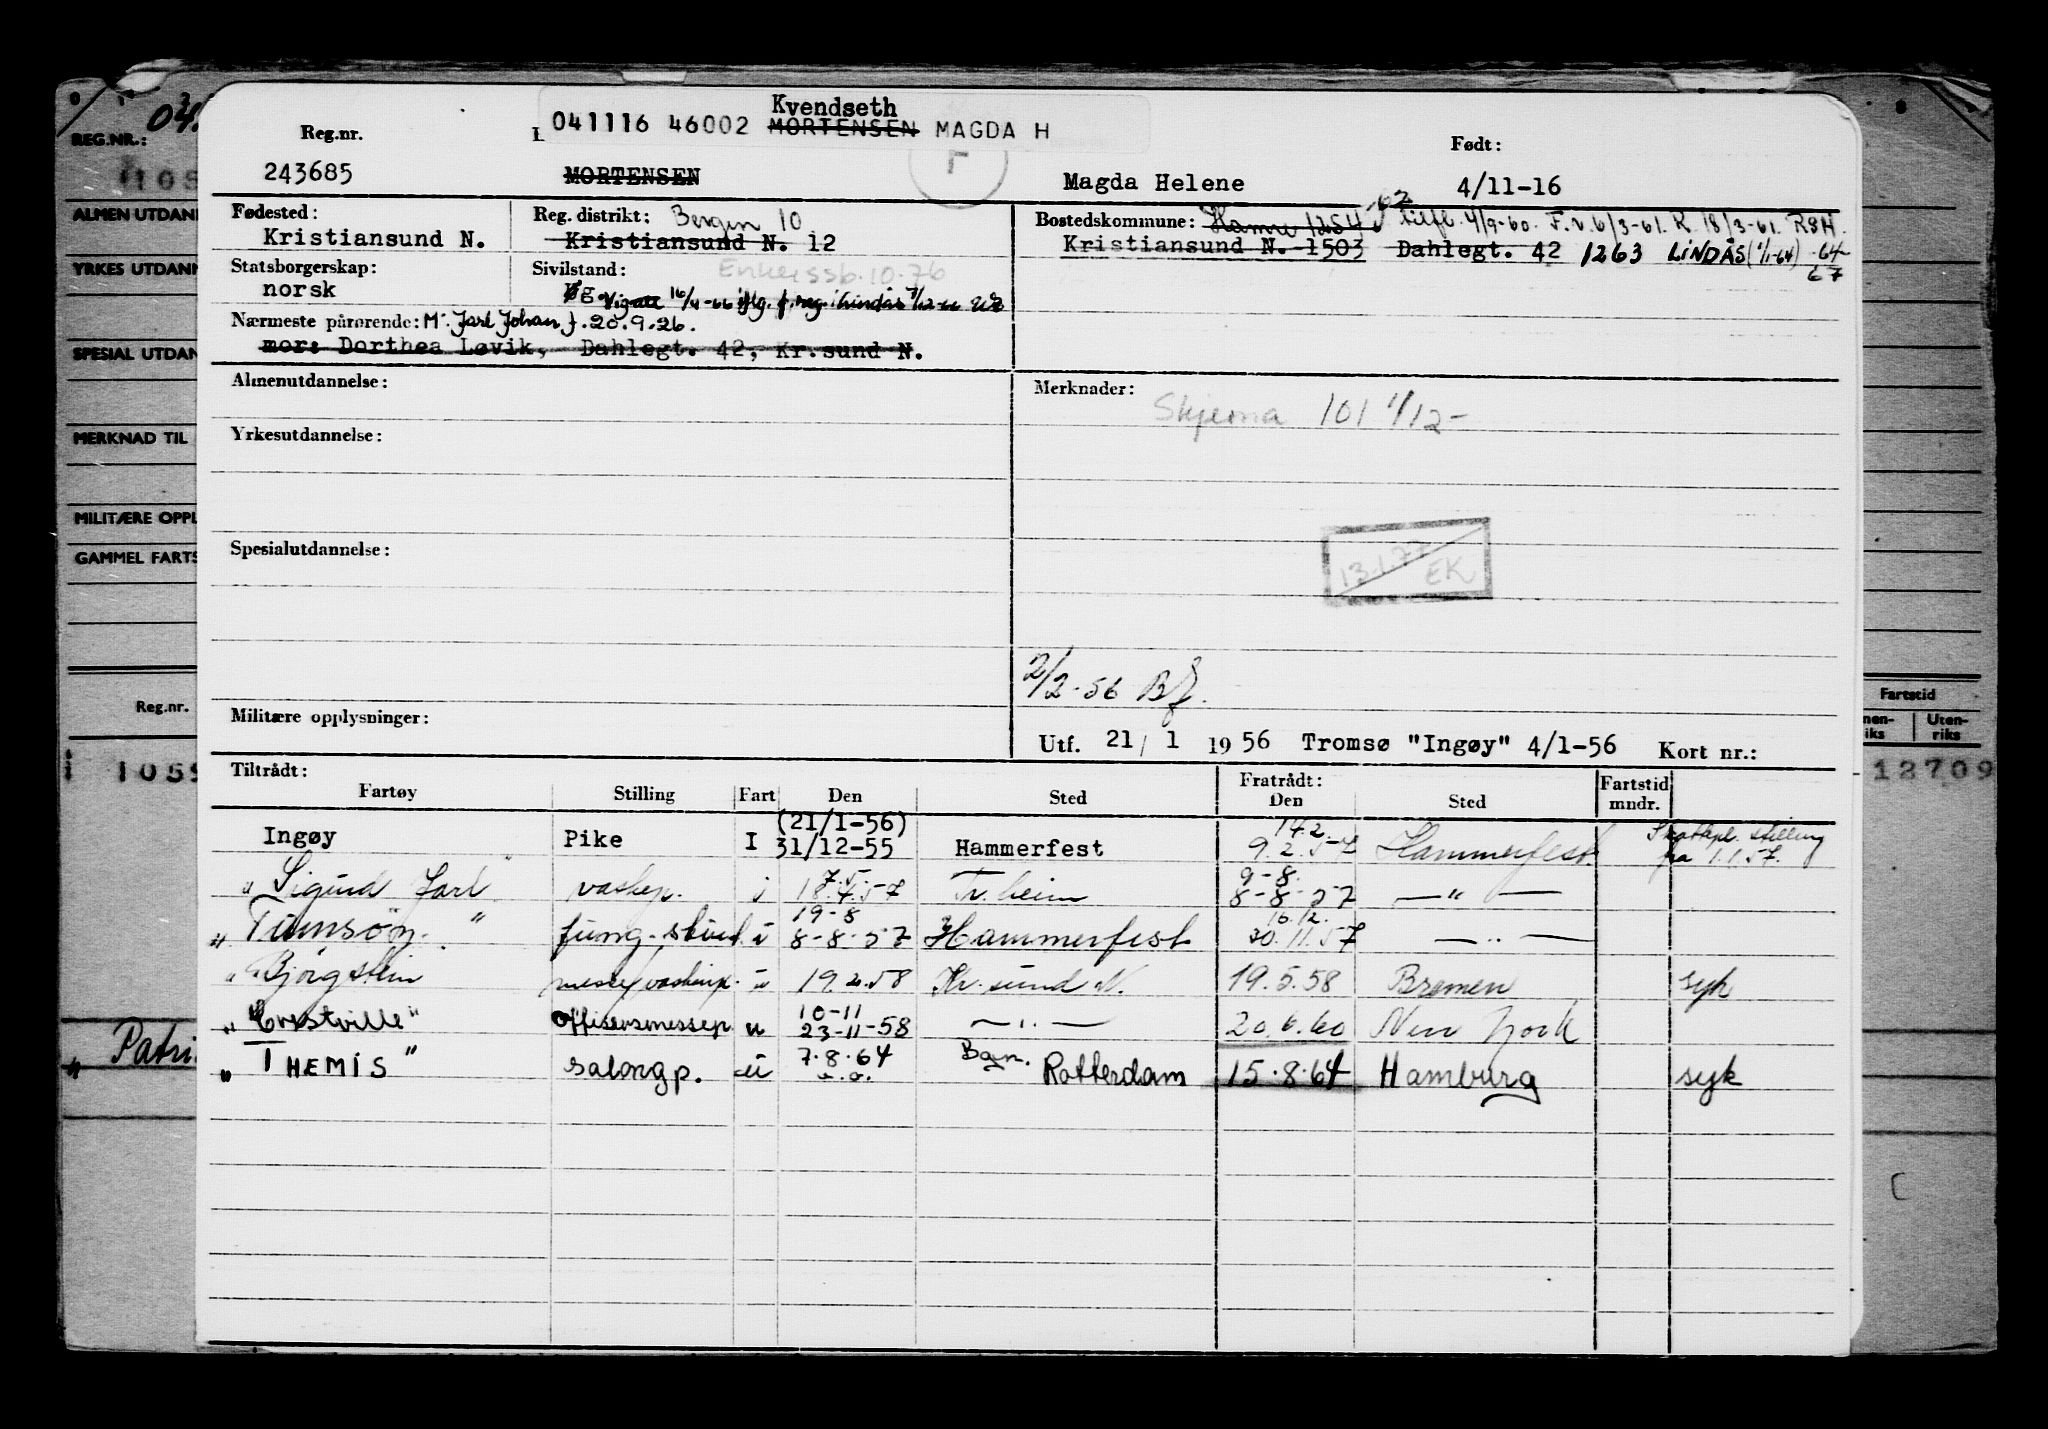 04.
REG.NR.:
105
ALMEN UTDAN
YRKES UTDAN
SPESIAL UTDAN
MERKNAD TIL
MILITÆRE OPPL
GAMMEL FARTS
Reg.nr.
1059
Patri
8
Fartstid
nen-
riks
Uten-
riks
12709
Kvendseth
041116 46002 MORTENSEN MAGDA H
Reg.nr.
Født:
243685
MORTENSEN
Magda Helene
4/11-16
Fødested:
Kristiansund N.
Reg. distrikt: Bergen 10
Kristiansund N. 12
Bostedskommune: Hamre 1254 -62 tilfl. 4/9-60. F.v. 6/3-61. R. 18/3-61. RSH.
Kristiansund N. 1503 Dahlegt. 42 1263 LINDÅS (1/1-64) -64
67
Statsborgerskap:
norsk
Sivilstand: Enke issb. 10.76
g Vigatt 16/4-66 iflg. f.reg. i Lindås 7/12-66
Nærmeste pårørende: M. Jarl Johan f. 20.9.26.
mor: Dorthea Løvik, Dahlegt. 42, Kr.sund N.
Almenutdannelse:
Merknader:
Skjema 101 1/12-
Yrkesutdannelse:
Spesialutdannelse:
13.1.77
EK
2/2-56
Militære opplysninger:
Utf. 21/ 1 1956 Tromsø "Ingøy" 4/1-56 Kort nr.:
Tiltrådt:
Fartøy Stilling Fart Den Sted
Fratrådt:
Den Sted
Fartstid
mndr.
Ingøy Pike I (21/1-56) 31/12-55 Hammerfest 14.2. 9.2.57 Hammerfest Skattepl. stilling fra 1.1.57.
" Sigurd Jarl " vaskep. i 7.5. 18.4.57 Tr.heim 9-8. 8-8-57 — " —
" Tamsøy " fung. stuert i 19-8 8-8-57 Hammerfest 16.12. 30.11.57 — " —
" Bjørgstein messe/vaskep. u 19.2.58 Kr.sund N. 19.5.58 Bremen syk
" Crestville " offisersmessep. u 10-11 23-11-58 — " — 20.6.60 New York
" THEMIS " salongp. u 7.8.64 Bgn. Rotterdam 15.8.64 Hamburg syk